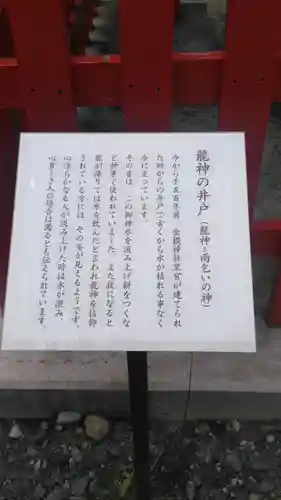 龍神の井戸（龍神＝雨乞いの神）
今から千五百年前　金櫻神社里宮が建てられ
た時からの井戸で古くから水が枯れる事なく
今に至っています。
その昔は、この御神水を汲み上げ餅をつくな
ど神事で使われていました。また夜になると
龍が降りては水を飲んだといわれ龍神を信仰
されている方には、その姿が見えるようです。
心清らかなる人が汲み上げた時は水が澄み、
心貧しき人の場合は濁るとも伝えられています。